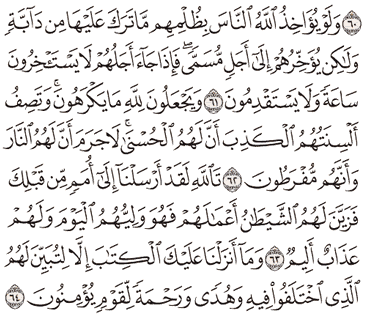 ﴿٦٠﴾ وَلَوْ يُؤَاخِذُ ٱللَّهُ ٱلنَّاسَ بِظُلْمِهِم مَّا تَرَكَ عَلَيْهَا مِن دَآبَّةٍ
وَلَٰكِن يُؤَخِّرُهُمْ إِلَىٰٓ أَجَلٍ مُّسَمًّى ۖ فَإِذَا جَآءَ أَجَلُهُمْ لَا يَسْتَـْٔخِرُونَ
سَاعَةً وَلَا يَسْتَقْدِمُونَ ﴿٦١﴾ وَيَجْعَلُونَ لِلَّهِ مَا يَكْرَهُونَ ۚ وَتَصِفُ
أَلْسِنَتُهُمُ ٱلْكَذِبَ أَنَّ لَهُمُ ٱلْحُسْنَىٰ ۖ لَا جَرَمَ أَنَّ لَهُمُ ٱلنَّارَ
وَأَنَّهُم مُّفْرَطُونَ ﴿٦٢﴾ تَٱللَّهِ لَقَدْ أَرْسَلْنَآ إِلَىٰٓ أُمَمٍ مِّن قَبْلِكَ
فَزَيَّنَ لَهُمُ ٱلشَّيْطَٰنُ أَعْمَٰلَهُمْ فَهُوَ وَلِيُّهُمُ ٱلْيَوْمَ وَلَهُمْ
عَذَابٌ أَلِيمٌ ﴿٦٣﴾ وَمَآ أَنزَلْنَا عَلَيْكَ ٱلْكِتَٰبَ إِلَّا لِتُبَيِّنَ لَهُمُ
ٱلَّذِى ٱخْتَلَفُوا۟ فِيهِ ۙ وَهُدًى وَرَحْمَةً لِّقَوْمٍ يُؤْمِنُونَ ﴿٦٤﴾